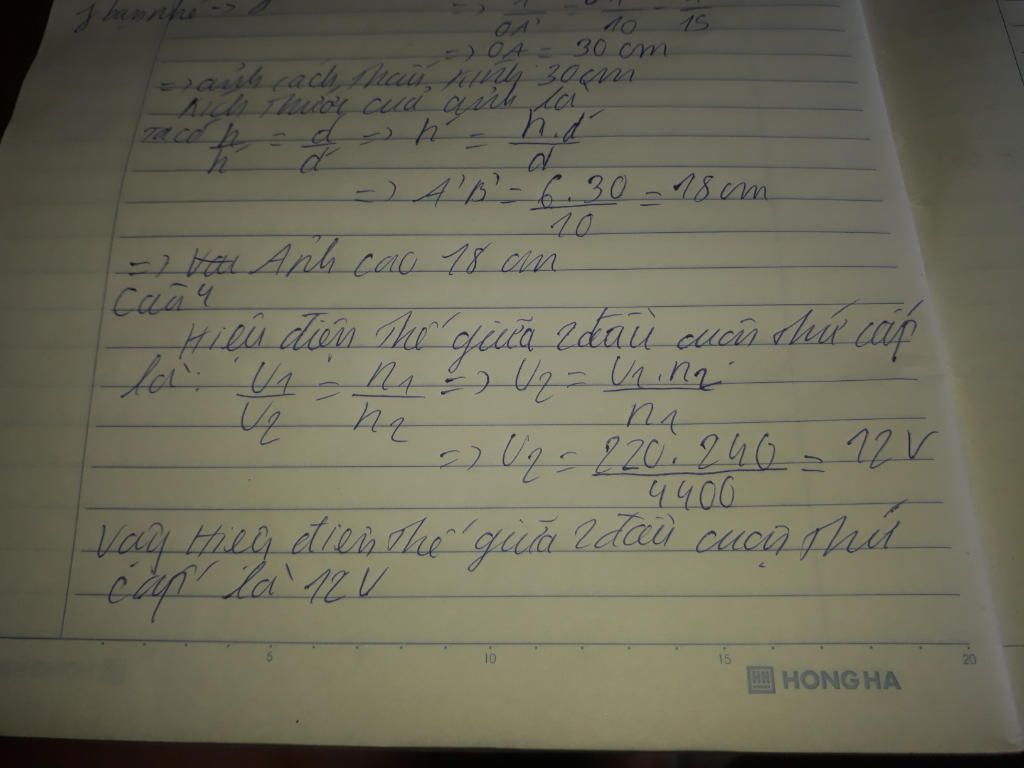 => 1/OA' = 1/10 - 1/15
=> OA = 30 cm
=> ảnh cách thấu kính 30cm
Kích thước của ảnh là
ta có h/h' = d/d' => h' = h.d'/d
=> A'B' = 6.30/10 = 18 cm
=> Ảnh cao 18 cm
Câu 4
Hiệu điện thế giữa 2 đầu cuộn thứ cấp
là: U1/U2 = n1/n2 => U2 = U1.n2/n1
=> U2 = 220.240/4400 = 12V
Vậy Hiệu điện thế giữa 2 đầu cuộn thứ
cấp là 12V
5 10 15 20
HONG HA